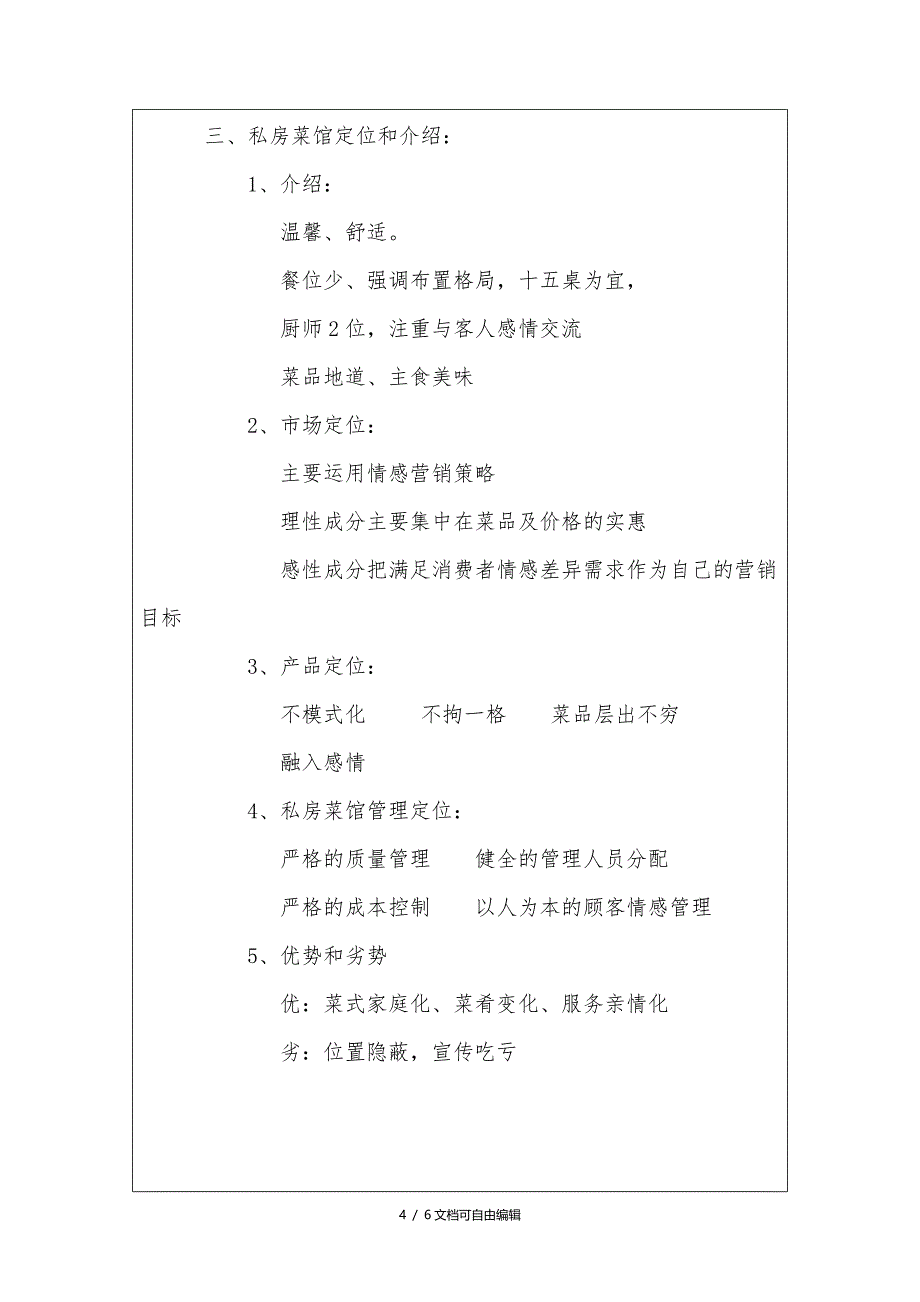 三、私房菜馆定位和介绍：
1、介绍：
温馨、舒适。
餐位少、强调布置格局，十五桌为宜，
厨师2位，注重与客人感情交流
菜品地道、主食美味
2、市场定位：
主要运用情感营销策略
理性成分主要集中在菜品及价格的实惠
感性成分把满足消费者情感差异需求作为自己的营销
目标
3、产品定位：
不模式化 不拘一格 菜品层出不穷
融入感情
4、私房菜馆管理定位：
严格的质量管理 健全的管理人员分配
严格的成本控制 以人为本的顾客情感管理
5、优势和劣势
优：菜式家庭化、菜肴变化、服务亲情化
劣：位置隐蔽，宣传吃亏
4 / 6文档可自由编辑